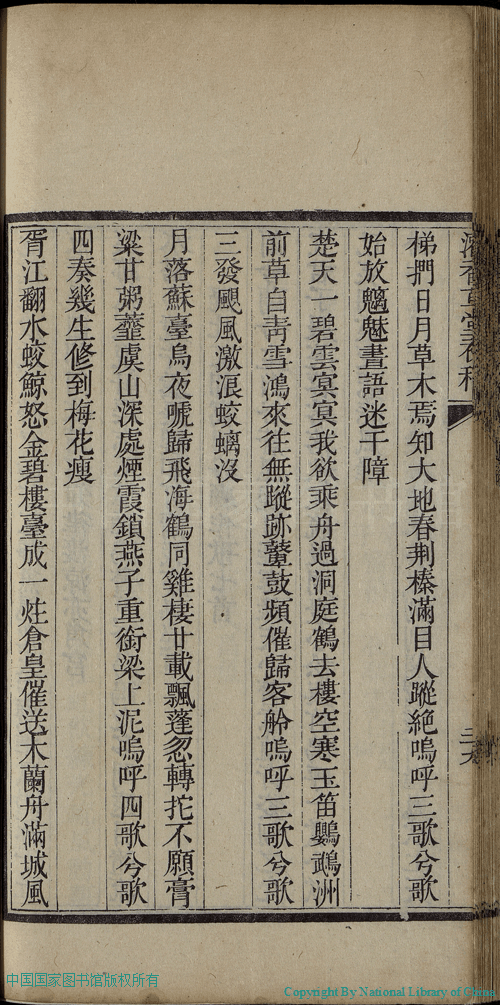 梯捫日月草木焉知大地春荆榛滿目人蹤絶嗚呼三歌兮歌
始放魑魅晝語迷干障
楚天一碧雲冥冥我欲乘舟過洞庭鶴去樓空寒玉笛鸚鵡洲
前草自靑雪鴻來往無蹤跡鼙鼓頻催歸客舲嗚呼三歌兮歌
三發颶風激浪蛟螭沒
月落蘇臺烏夜嗁歸飛海鶴同雞棲廿載飄蓬忽轉拕不願膏
粱甘粥虀虞山深處煙霞鎖燕子重銜梁上泥嗚呼四歌兮歌
四奏幾生修到梅花瘦
胥江翻水蛟鯨怒金碧樓臺成一炷倉皇催送木蘭舟滿城風
中国国家图书馆版权所有
Copyright By National Library of China